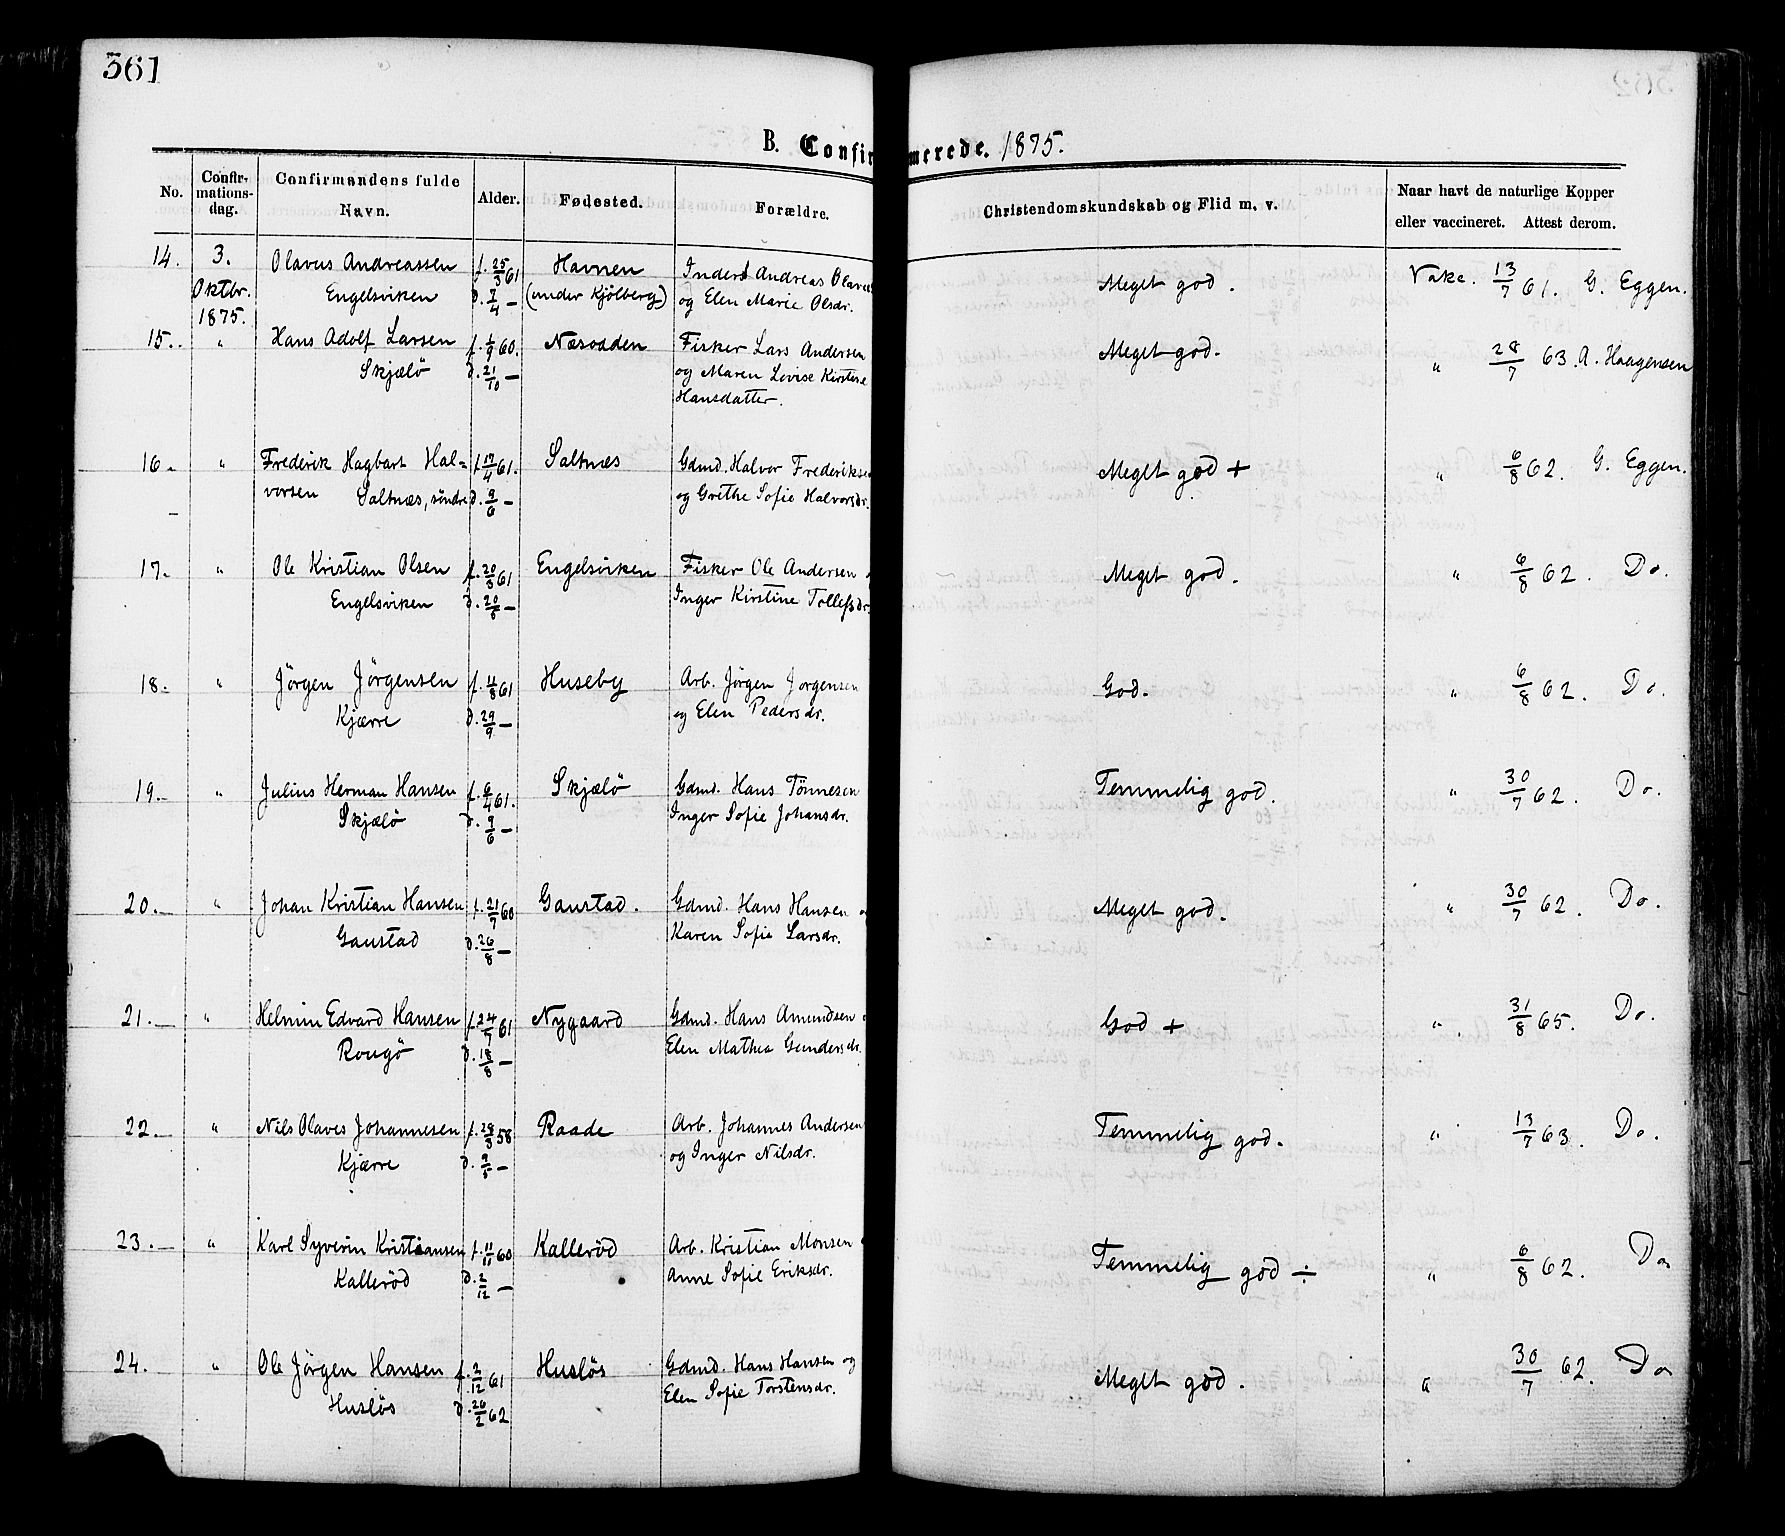 361
B. Confirmerede. 1875.
No. Confirmationsdag. Confirmandens fulde Navn. Alder. Fødested. Forældre. Christendomskundskab og Flid m. v. Naar havt de naturlige Kopper eller vaccineret. Attest derom.
14. 3. Olavus Andreassen f. 25/3 61 Havnen Inderst Andreas Olaves Meget god. Vakc. 13/7 61. G. Eggen.
Oktbr. Engelsviken d. 7/4 — (under Kjölberg) og Elen Marie Olsdr.
1875.
15. " Hans Adolf Larsen f. 1/9 60. Næsodden Fisker Lars Andersen Meget god. " 28/7 63. A. Haagensen
Skjælö d. 21/10 — og Maren Lovise Kirstine
Hansdatter.
16. " Frederik Hagbart Hal= f. 17/4 61. Saltnæs Gdmd. Halvor Frederikse Meget god + " 6/8 62. G. Eggen.
vorsen Saltnæs, söndre d. 9/6 — og Grethe Sofie Halvorsdr.
17. " Ole Kristian Olsen f. 20/5 61 Engelsviken Fisker Ole Andersen Meget god. " 6/8 62. Do.
Engelsviken d. 20/5 — Inger Kirstine Tollefsdr.
18. " Jörgen Jörgensen f. 11/8 61 Huseby Arb. Jörgen Jorgensen God. " 6/8 62. Do.
Kjærre d. 29/9 — og Elen Pedersdr.
19. " Julius Herman Hansen f. 6/4 61. Skjælö Gdmd. Hans Tönnesen Temmelig god. " 30/7 62. Do.
Skjælö d. 9/6 — Inger Sofie Johansdr.
20. " Johan Kristian Hansen f. 21/7 60 Gaustad. Gdmd. Hans Hansen Meget god. " 30/7 62. Do.
Gaustad d. 26/8 — Karen Sofie Larsdr.
21. " Helmin Edvard Hansen f. 24/7 61 Nygaard Gdmd. Hans Amundsen God + " 31/8 65. Do.
Rougö d. 18/8 — Elen Mathea Gundersdr.
22. " Nils Olaves Johannesen f. 28/3 58 Raade Arb. Johannes Andersen Temmelig god. " 13/7 63. Do.
Kjærre d. 9/5 — og Inger Nilsdr.
23. " Karl Syverin Kristiansen f. 11/10 60 Kalleröd Arb. Kristian Monsen Temmelig god ÷ " 6/8 62. Do
Kalleröd d. 2/12 — Anne Sofie Eriksdr.
24. " Ole Jörgen Hansen f. 2/12 61 Huslös Gdmd. Hans Hansen og Meget god. " 30/7 62. Do
Huslös d. 26/2 62 Elen Sofie Torstensdr.